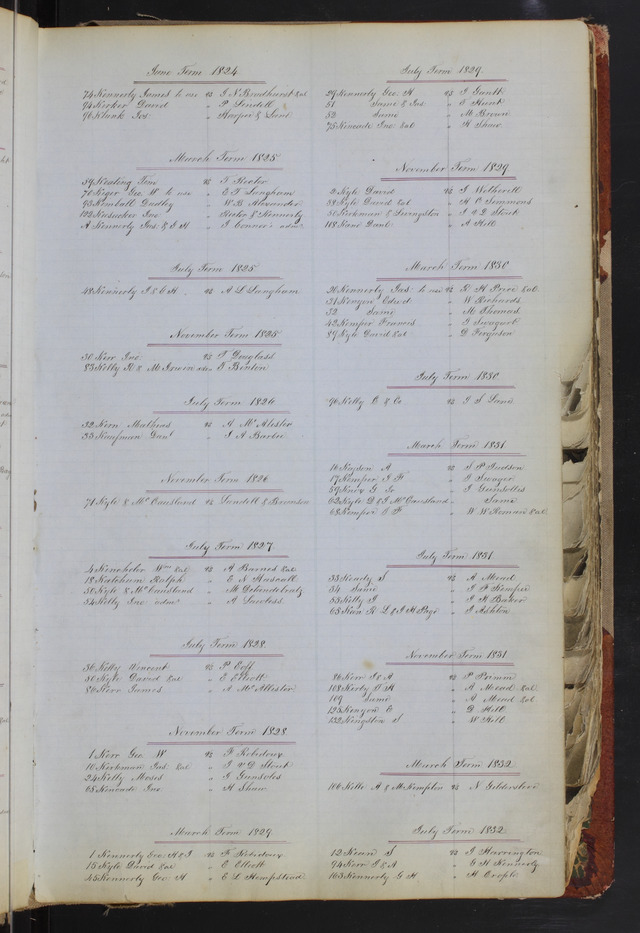 June Term 1824
74 Kennerly James to use vs I N Brodhurst &al
94 Kerker David " P Lindell
96 Klunk Jos. " Harper &
March Term 1825
59 Keating Tim vs T Rector
70 Keger Geo. W to use " E T Langham
93 Kimball Dudley " W B Alexander
102 Jno. " Rector & Kennerly
A Kennerly Jas. & G H " J Connor's adm.
July Term 1825
48 Kennerly J & G H vs A L Langham
November Term 1825
30 Kerr Jno vs T Douglass
83 Kelly R & M Irwin " T Benton
July Term 1826
32 Kern Mathias vs A McAlister
35 Kaufman Danl " J A Barbee
November Term 1826
71 Kyle & McCausland vs Lundell & Brunson
July Term 1827
4 Wm &al vs A Barnes &al
18 Ketchum Ralph " E N
50 Kyle & McCausland " M
54 Kelly Jno adm " A Lawless
July Term 1828
36 Kelly Vincent vs P
50 Kyle David &al " E Elliott
80 Kerr James " A McAllister
November Term 1828
1 Kerr Geo. W vs F Robidoux
10 Kerkman Jas. &al " J & D Stout
24 Kelly Moses " J Gunsoles
65 Kencade Jno " H Shaw
March Term 1829
1 Kennerly Geo H & J vs F Robidoux
15 Kyle David &al " E Elliott
45 Kennerly Geo H " E L Hempstead
July Term 1829
29 Kennerly Geo. H vs J Gantt
51 Same & Jas " E Hunt
52 Same " M Brown
75 Kencade Jno &al " H Shaw
November Term 1829
2 Kyle David vs J Wetherell
38 Kyle David &al " H C Simmons
50 Kerkman & Livingston " J & D Stout
118 Kane Danl " A Hill
March Term 1830
26 Kennerly Jas. to use vs R H Price &al
31 Kenyon Edwd " W Richards
32 Same " M Thomas
42 Kemper Francis " J
87 Kyle David &al " D Ferguson
July Term 1830
96 Kelly B & Co vs J S Lane
March Term 1831
16 A vs S P Judson
17 Kemper J F " J
59 Knox G R " J Gunsolles
62 Kyle D & J McCausland " Same
68 Kemper E F " W W &al
July Term 1831
33 Keady S vs A Mead
54 Same " J F Kemper
55 Kelly J " J H Baker
63 Keen R L & J H Page " J Ashton
November Term 1831
86 Kerr J & A vs P Primm
108 Kerby D H " A Mead &al
109 Same " A Mead &al
125 Kenyon E " D Hill
132 Kingston S " W Hill
March Term 1832
106 Kelle A & McKimplin vs N Gildersleve
July Term 1832
12 Kean S vs J Harrington
94 Kerr J & A " G H Kennerly
103 Kennerly G H " H Crople